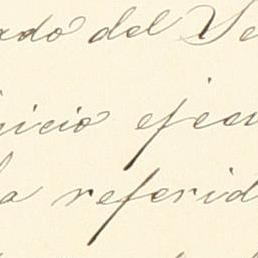 ado del Se
uicio ejecu
la referid